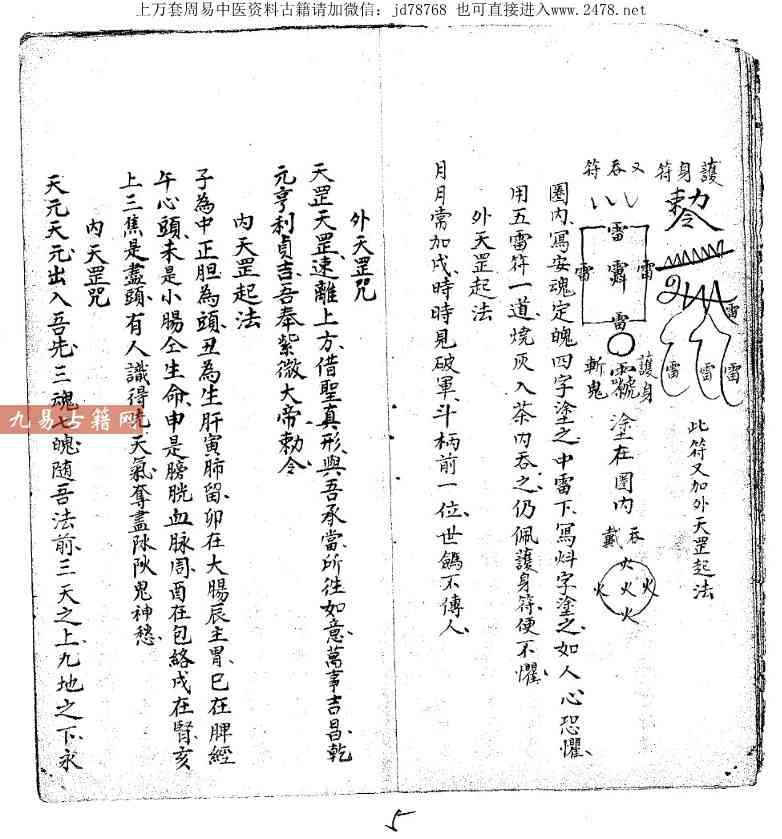 上万套周易中医资料古籍请加微信：jd78768 也可直接进入www.2478.net
護身符
又吞符
敕令
雷
雷
雷
雷
雷
雷
雷
雷
雷
此符又加外天罡起法
護身
斬鬼
塗在圈内
吞
戴
火
火火火
火
圈内、寫安魂定魄四字塗之、中雷下、寫炓字塗之、如人心恐懼、
用五雷符一道、燒灰入茶内吞之、仍佩護身符、便不懼、
外天罡起法
月月常加戌、時時見破軍、斗柄前一位、世不傳人、
外天罡咒
天罡天罡、速離上方、借聖真形、與吾承當、所往如意、萬事吉昌、乾
元亨利貞吉、吾奉紫微大帝勅令
内天罡起法
子為中正胆為頭、丑為生肝寅肺留、卯在大腸辰主胃、巳在脾經
午心頭、未是小腸仝生命、申是膀胱血脉周、酉在包絡戌在腎、亥
上三焦是盡頭、有人識得先天氣、奪盡鬼神愁、
内天罡咒
天元天元、出入吾先、三魂七魄、隨吾法前、三天之上、九地之下、永
九易古籍网
5